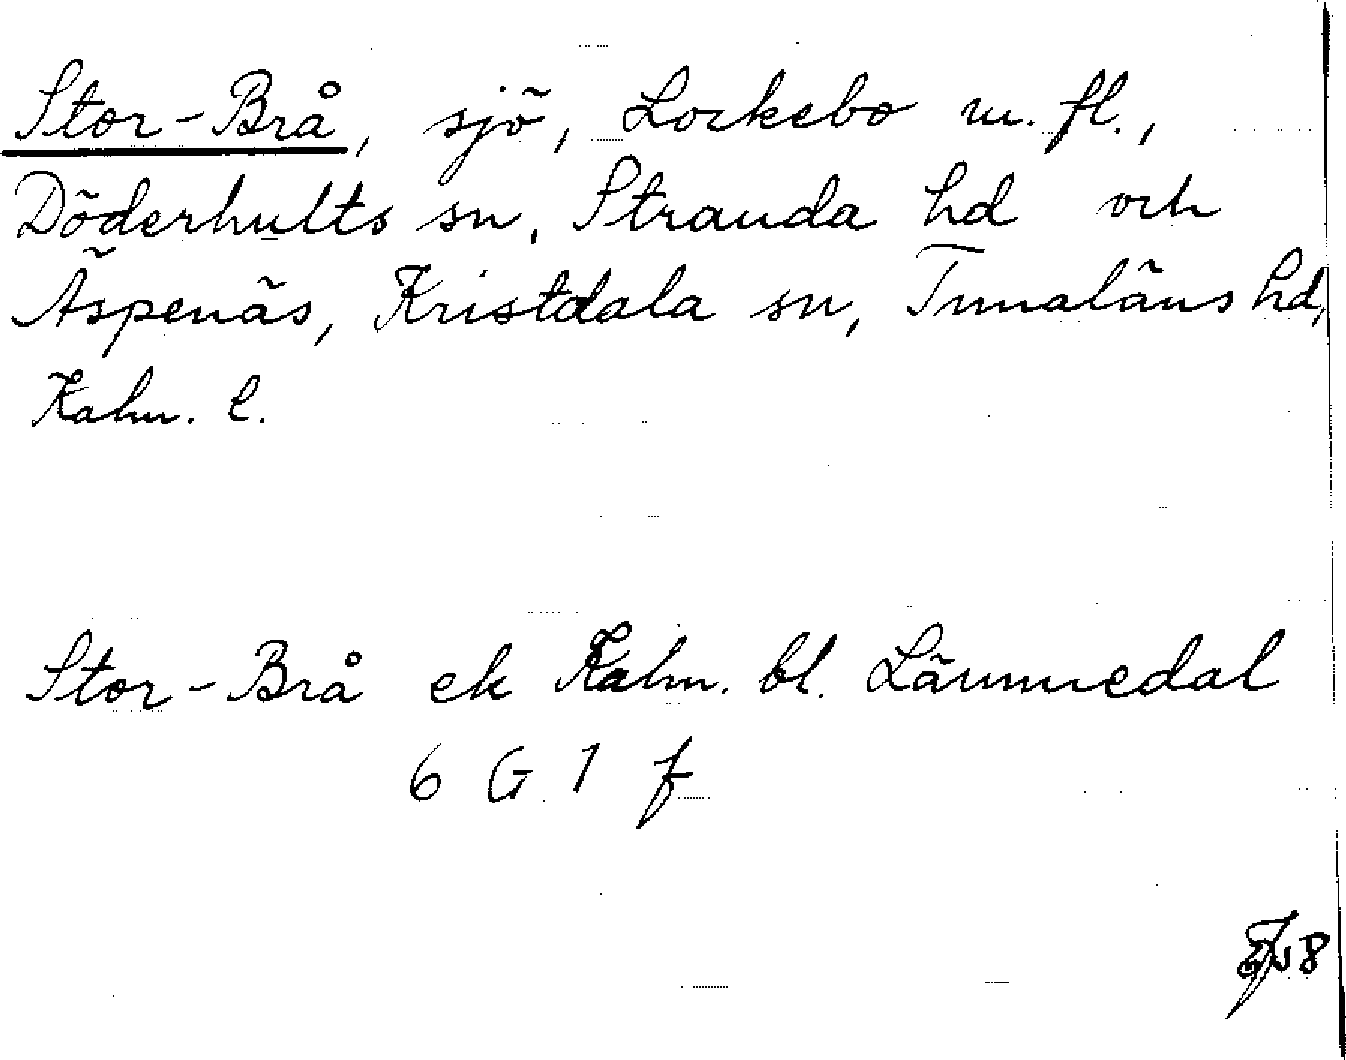 Stor-Brå, sjö, Lockebo m. fl.,
Döderhults sn, Stranda hd och
Äspenäs, Kristdala sn, Tunaläns hd,
Kalm. l.
Stor-Brå ek Kalm. bl. Lämmedal
6 G 1 f